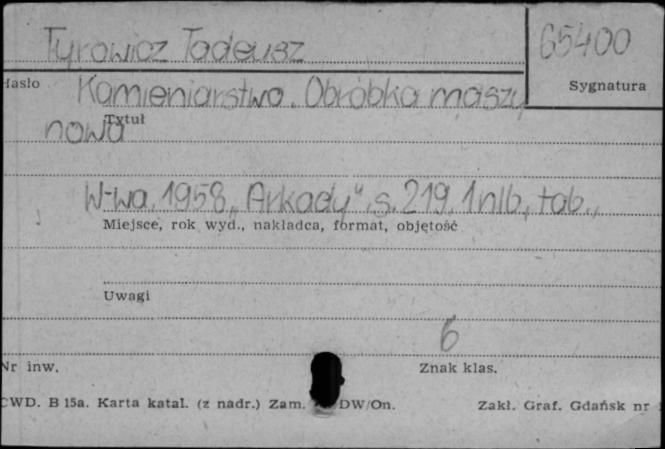 Tyrowicz Tadeusz
65400
Hasło
Sygnatura
Kamieniarstwo. Obróbka maszy
Tytuł
nowa
W-wa, 1958, "Arkady", s. 219, 1 nlb, tab.,
Miejsce, rok wyd., nakładca, format, objętość
Uwagi
6
Nr inw.
Znak klas.
CWD. B 15a. Karta katal. (z nadr.) Zam. DW/On.
Zakł. Graf. Gdańsk nr